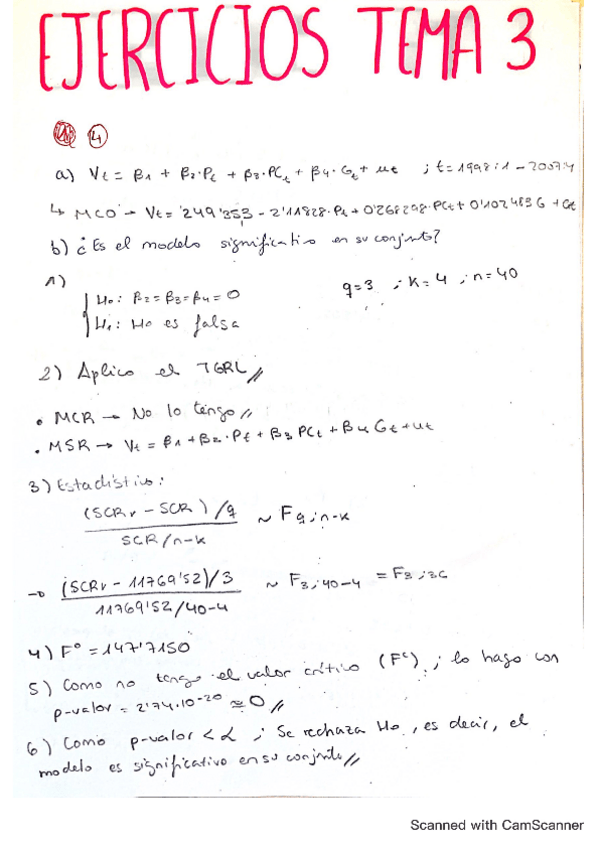 EJERCICIOS TEMA 3
4
a) Vt = β1 + β2·Pt + β3·PCt + β4·Gt + ut ; t = 1998:1 - 2007:4
↳ MCO → Vt = 249'353 - 2'11828·Pt + 0'268298·PCt + 0'102483G + et
b) ¿Es el modelo significativo en su conjunto?
1)
H0: β2=β3=β4=0 q=3 ; k=4 ; n=40
H1: H0 es falsa
2) Aplico el TGRL //
• MCR → No lo tengo //
• MSR → Vt = β1 + β2·Pt + β3 PCt + β4 Gt + ut
3) Estadístico:
(SCRr - SCR)/q ~ Fq;n-k
SCR/n-k
→ (SCRr - 11769'52)/3 ~ F3;40-4 = F3;36
11769'52/40-4
4) F° = 147'7150
5) Como no tengo el valor crítico (Fc) ; lo hago con
p-valor = 2'74·10-20 ≈ 0 //
6) Como p-valor < α ; Se rechaza H0, es decir, el
modelo es significativo en su conjunto //
Scanned with CamScanner